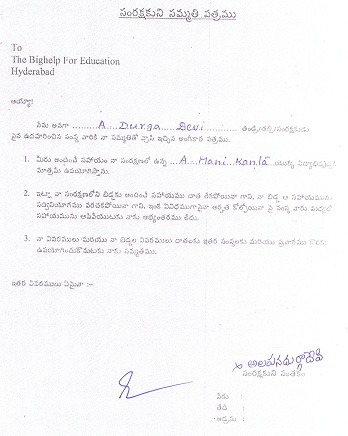 సంరక్షకుని సమ్మతి పత్రము
To
The Bighelp For Education
Hyderabad
అయ్యా!
నేను అనగా A Durga Devi తండ్రి/తల్లి/సంరక్షకుడు
పైన ఉదహరించిన సంస్థ వారికి నా సమ్మతితో వ్రాసి ఇచ్చిన అంగీకార పత్రము.
1. మీరు అందించే సహాయం నా సంరక్షణలో ఉన్న A. Mani Kanta యొక్క విద్యాభివృద్ధికి
మాత్రమే ఉపయోగిస్తాను.
2. ఇట్లా నా సంరక్షణలోని బిడ్డకు అందించే సహాయము దాత లేకపోయినా గాని, నా బిడ్డ ఆ సహాయమును
సద్వినియోగము పరచకపోయినా గాని, ఇంకే విధముగానైనా అర్హత కోల్పోయినా పై సంస్థ వారు మధ్యలో
సహాయమును ఆపివేయుటకు నాకు అభ్యంతరము లేదు.
3. నా వివరములు మరియు నా బిడ్డల వివరములు దాతలకు ఇతర సంస్థలకు మరియు ప్రచారము కొరకు
ఉపయోగించుకొనుటకు నాకు సమ్మతము.
ఇతర వివరములు ఏమైనా :-
x అలపనదుర్గాదేవి
సంరక్షకుని సంతకం
పేరు :
తేదీ :
అడ్రసు :